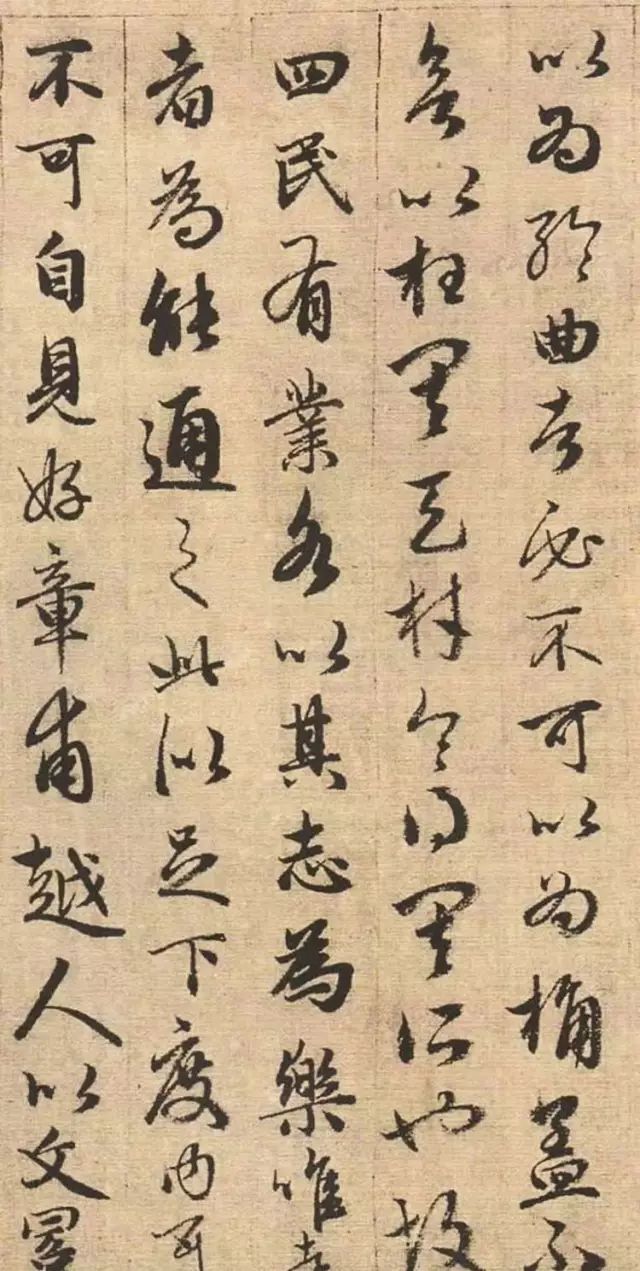 以為輪曲者必不可以為桷盖不
欲以枉其天材令得其所也故
四民有業各以其志為樂唯
者為能通之此似足下度内耳
不可自見好章甫越人以文冕